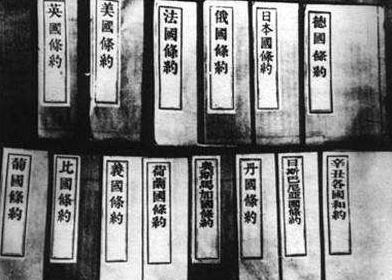 英國條約
美國條約
法國條約
俄國條約
日本國條約
德國條約
葡國條約
比國條約
義國條約
荷蘭國條約
奧斯馬加國條約
丹國條約
日斯巴尼亞國條約
辛丑各國和約